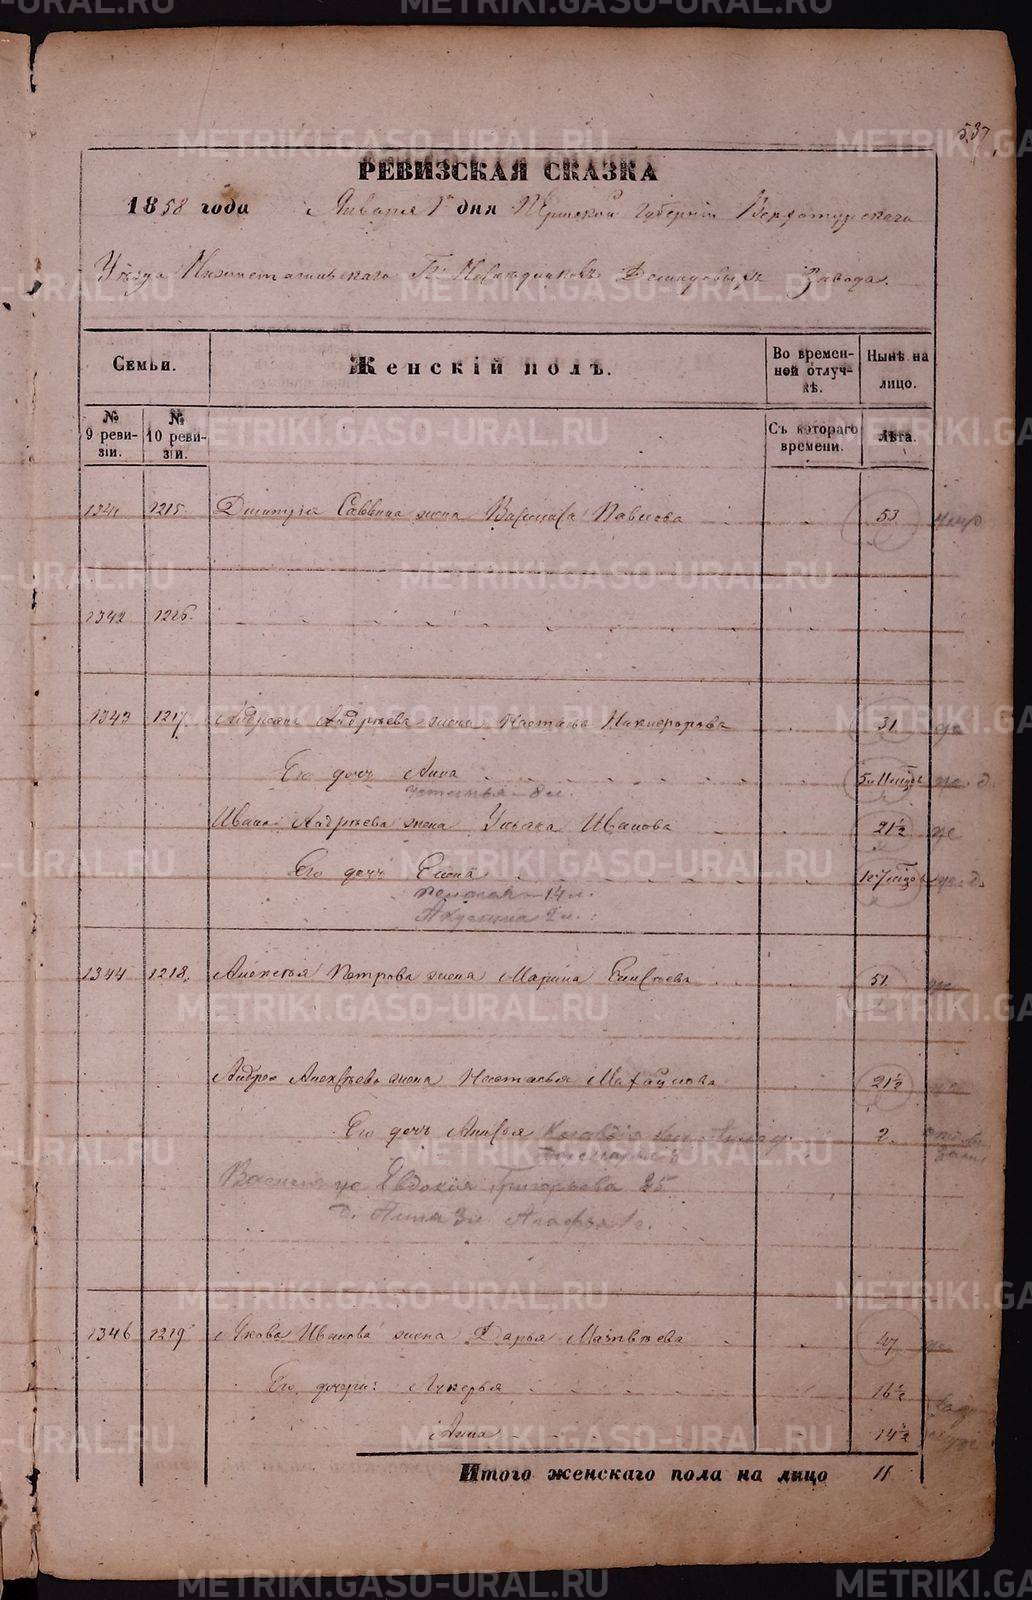 537
РЕВИЗСКАЯ СКАЗКА
1858 года Января 1го дня Пермской Губернiи Верхотурскаго
Уѣзда Нижнетагильскаго Гг. Наслѣдниковъ Демидовыхъ Завода.
Семьи. Женскій полъ. Во временной отлучкѣ. Нынѣ на лицо.
№ 9 ревизіи. № 10 ревизіи. Съ котораго времени. Лѣта.
1341 1215. Дмитрія Саввина жена Василиса Павлова 53
1342 1216.
1343 1217. Андреяна Андрѣева жена Настасья Никифорова 31
Его дочь Анна 5 и 11 мѣцовъ
Устинья 8 л.
Ивана Андрѣева жена Ульяна Иванова 21½
Его дочь Елена
Пелагея 14 л.
Акулина 2 л.
1344 1218. Алексѣя Петрова жена Марина Елисѣева 51.
Андрея Алексѣева жена Настасья Михайлова 21½
Его дочь Анисья 2.
Василія же Евдокія Григорьева 25
д. Анна 3 л. Агафья 1 г.
1346 1219 Якова Иванова жена Дарья Матвѣева 47
Его дочери: Лукерья 16½
Анна 14½
Итого женскаго пола на лицо 11
METRIKI.GASO-URAL.RU